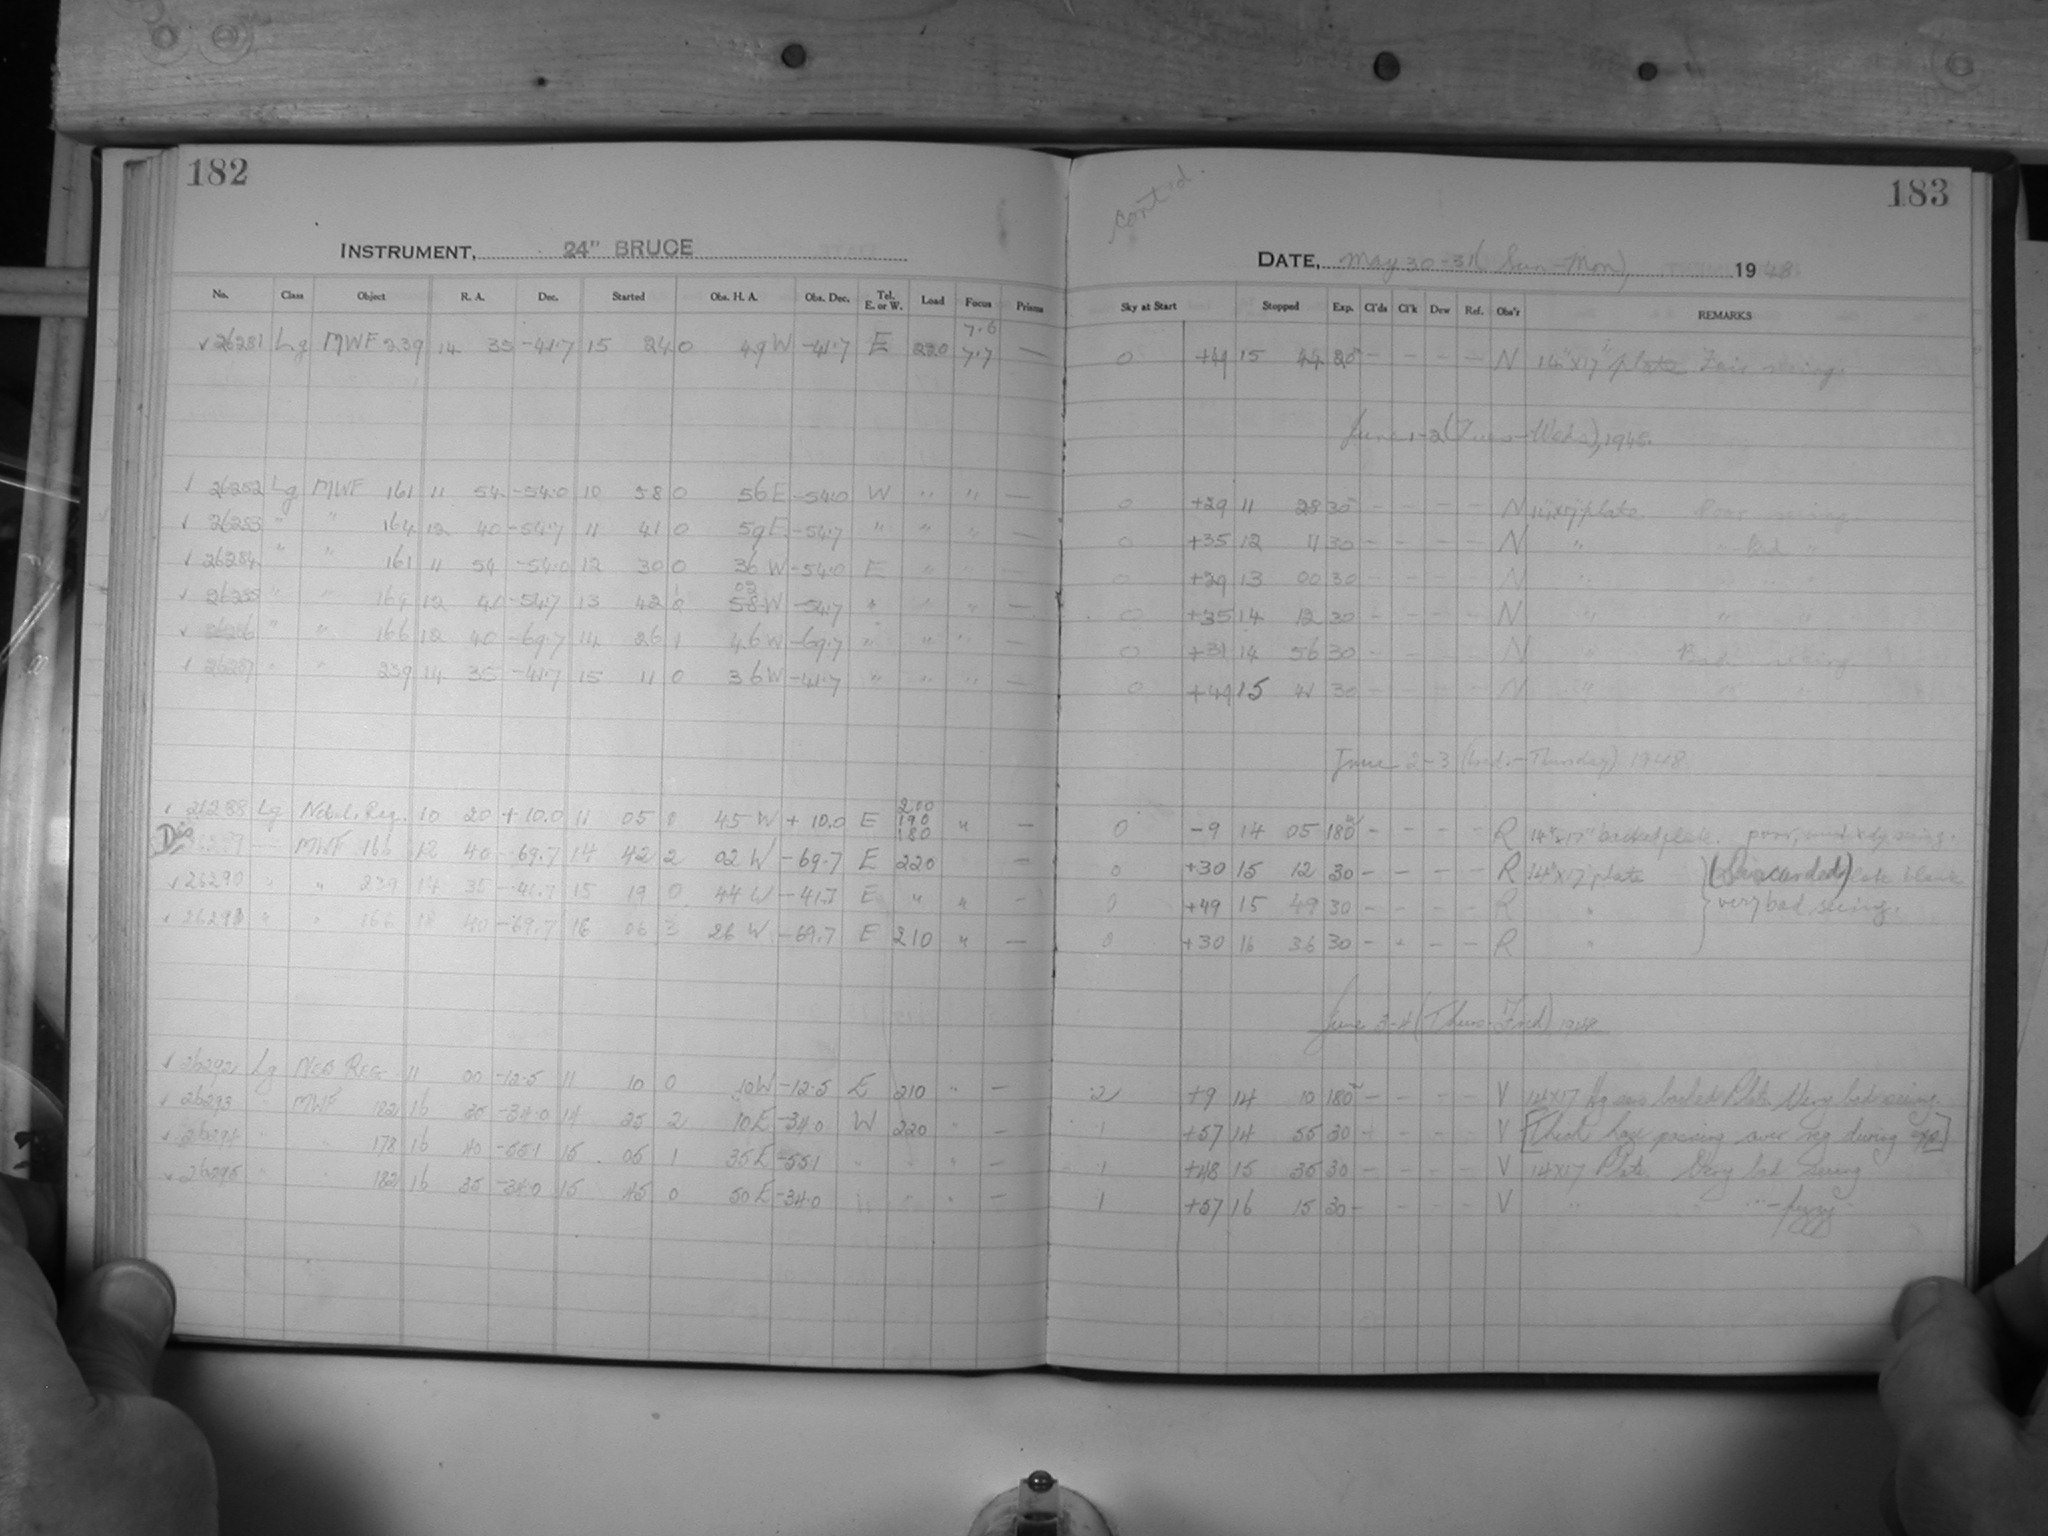 182
INSTRUMENT, 24" BRUCE
No. Class Object R. A. Dec. Started Obs. H. A. Obs. Dec. Tel. E. or W. Load Focus Prisms
√ 26281 Lg MWF 239 14 35 -41.7 15 24 0 49 W -41.7 E 220 7.6 7.7 —
√ 26282 Lg MWF 161 11 54 -54.0 10 58 0 56 E -54.0 W " " —
√ 26283 " " 164 12 40 -54.7 11 41 0 59 E -54.7 " " " —
√ 26284 " " 161 11 54 -54.0 12 30 0 36 W -54.0 E " " —
√ 26285 " " 164 12 40 -54.7 13 42 1 02 W -54.7 " " " —
√ 26286 " " 166 12 40 -69.7 14 26 1 46 W -69.7 " " " —
√ 26287 " " 239 14 35 -41.7 15 11 0 36 W -41.7 " " " —
√ 26288 Lg Nebul. Reg. 10 20 +10.0 11 05 0 45 W +10.0 E 200 190 180 " —
Dis 26289 — MWF 166 12 40 -69.7 14 42 2 02 W -69.7 E 220 —
√ 26290 " " 239 14 35 -41.7 15 19 0 44 W -41.7 E " " —
√ 26291 " " 166 12 40 -69.7 16 06 3 26 W -69.7 E 210 " —
√ 26292 Lg NEB REG 11 00 -12.5 11 10 0 10 W -12.5 E 210 " —
√ 26293 " MWF 182 16 35 -34.0 14 25 2 10 E -34.0 W 220 " —
√ 26294 " " 178 16 40 -55.1 15 05 1 35 E -55.1 " " " —
√ 26295 " " 182 16 35 -34.0 15 45 0 50 E -34.0 " " " —
cont'd.
183
DATE, May 30-31 (Sun-Mon), 1948
Sky at Start Stopped Exp. Cl'ds Cl'k Dew Ref. Obs'r REMARKS
0 +49 15 44 20 - - - - N 14"x17" plate Fair seeing.
June 1-2 (Tues-Weds), 1948.
0 +29 11 28 30 - - - - N 14"x17" plate Poor seeing
0 +35 12 11 30 - - - - N " " Bad "
0 +29 13 00 30 - - - - N "
0 +35 14 12 30 - - - - N " " "
0 +31 14 56 30 - - - - N " Bad seeing.
0 +49 15 41 30 - - - - N "
June 2-3 (Wed.-Thursday) 1948
0 -9 14 05 180 - - - - R 14"x17" backed plate. poor, unsteady seeing.
0 +30 15 12 30 - - - - R 14"x17" plate (Discarded) plate blank
0 +49 15 49 30 - - - - R " very bad seeing.
0 +30 16 36 30 - + - - R "
June 3-4 (Thurs-Frid) 1948
2 +9 14 10 180 - - - - V 14x17 backed Plate. Very bad seeing.
1 +57 14 55 30 - - - - V [Thick haze passing over reg during exp.]
1 +48 15 35 30 - - - - V 14x17 Plate. Very bad seeing
1 +57 16 15 30 - - - - V " " - fuzzy